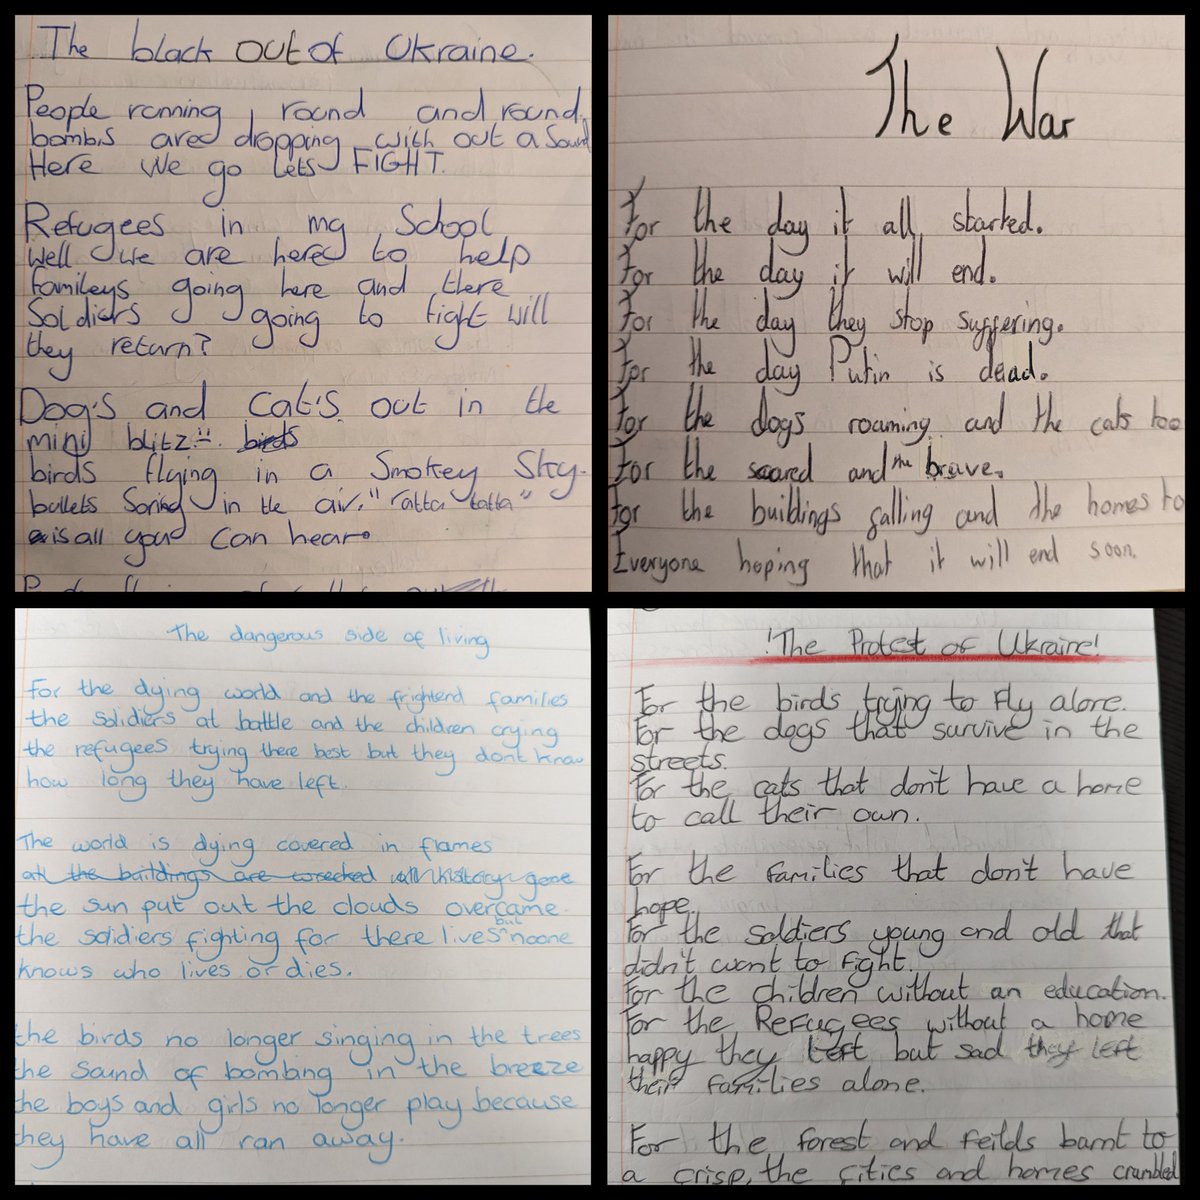 The black out of Ukraine.
People running round and round.
bombs are dropping with out a Sound
Here We go lets FIGHT.
Refugees in my School
Well We are here to help
famileys going here and there
Soldiers going to fight will
they return?
Dog's and Cat's out in the
mini blitz
birds flying in a Smokey Sky.
bullets in the air. "ratta tatta"
is all you can hear.
The War
For the day it all started.
For the day it will end.
For the day they stop suffering.
For the day Putin is dead.
For the dogs roaming and the cats too
For the scared and the brave.
For the buildings falling and the homes to
Everyone hoping that it will end soon.
The dangerous side of living
For the dying world and the frightend families
the solidiers at battle and the children crying
the refugees trying there best but they dont know
how long they have left.
The world is dying covered in flames
all the buildings are wrecked all history gone
the sun put out the clouds overcame.
the solidiers fighting for there lives but noone
knows who lives or dies.
the birds no longer singing in the trees
the sound of bombing in the breeze
the boys and girls no longer play because
they have all ran away.
!The Protest of Ukraine!
For the birds trying to fly alone.
For the dogs that survive in the
streets.
For the cats that don't have a home
to call their own.
For the families that don't have
hope.
For the soldiers young and old that
didn't want to fight.
For the children without an education.
For the Refugees without a home
happy they left but sad they left
their families alone.
For the forest and feilds burnt to
a crisp, the cities and homes crumbled